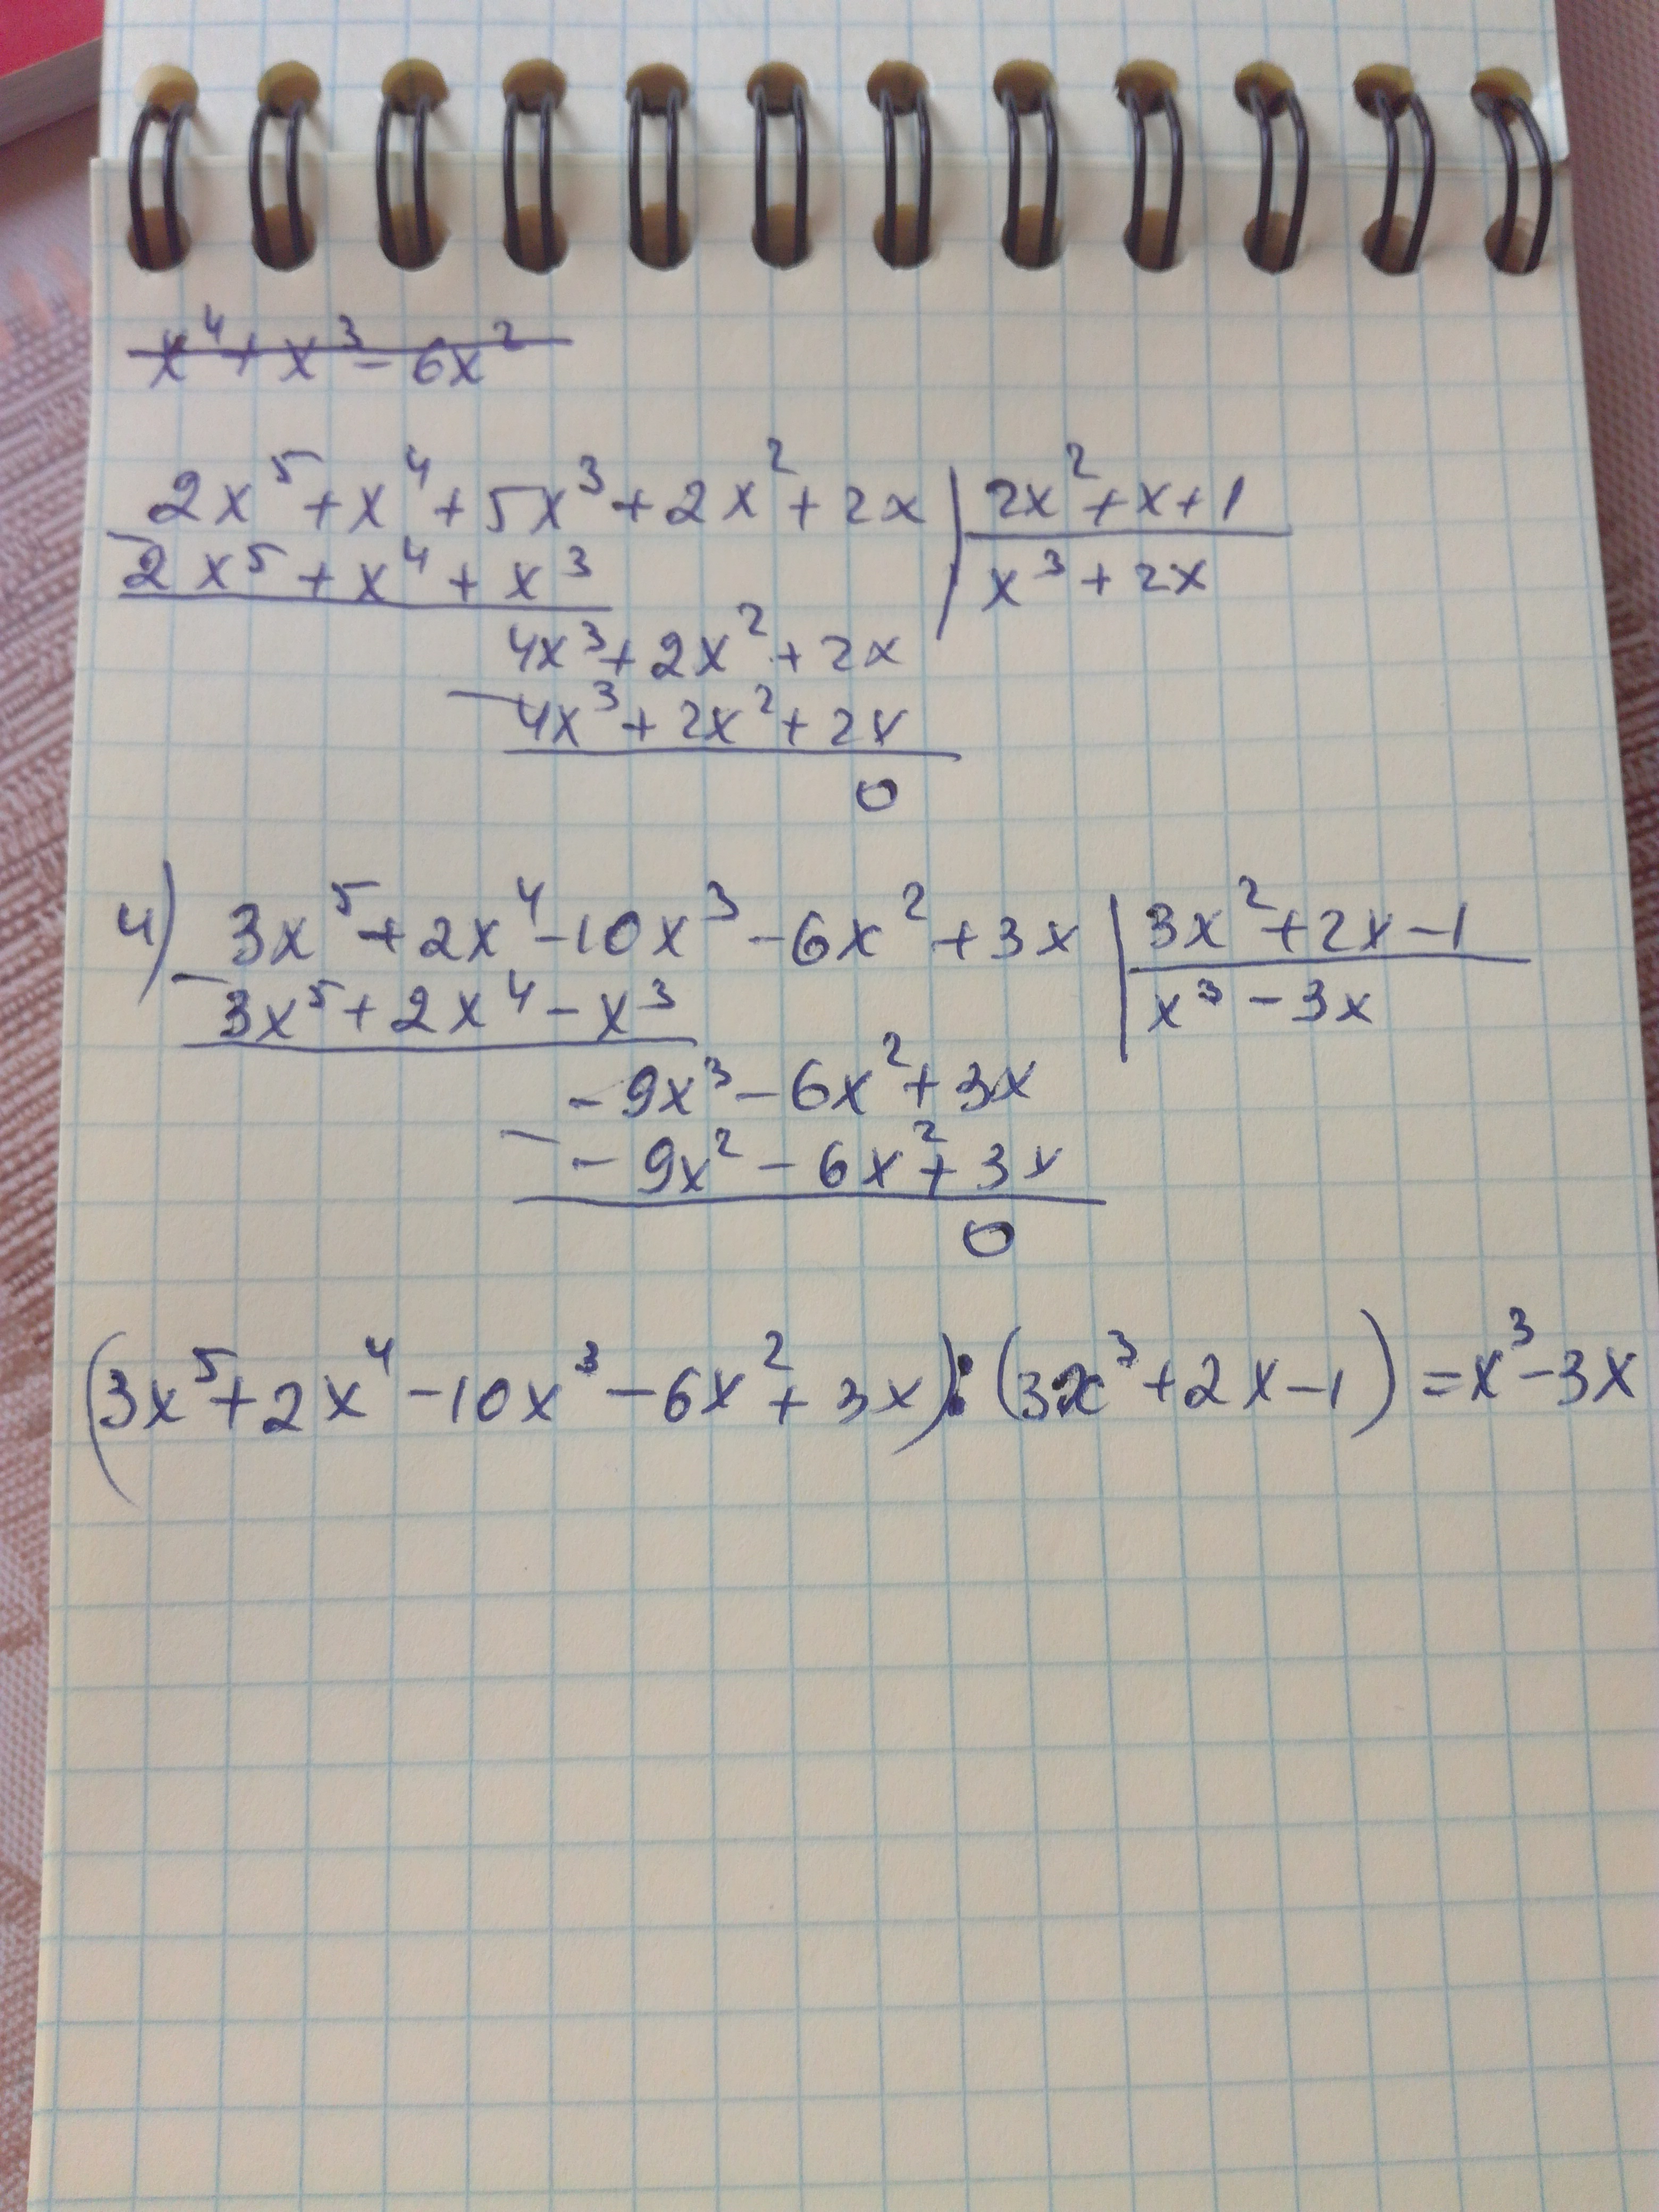 x⁴ + x³ - 6x²
2x⁵ + x⁴ + 5x³ + 2x² + 2x | 2x² + x + 1
- 2x⁵ + x⁴ + x³ | x³ + 2x
4x³ + 2x² + 2x
- 4x³ + 2x² + 2x
0
4) 3x⁵ + 2x⁴ - 10x³ - 6x² + 3x | 3x² + 2x - 1
- 3x⁵ + 2x⁴ - x³ | x³ - 3x
- 9x³ - 6x² + 3x
- - 9x² - 6x² + 3x
0
(3x⁵ + 2x⁴ - 10x³ - 6x² + 3x) : (3x³ + 2x - 1) = x³ - 3x